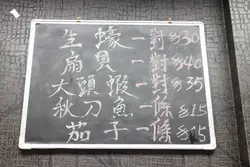 生蠔一對$30
扇貝一對$40
大頭蝦一對$35
秋刀魚一條$15
茄子一條$15